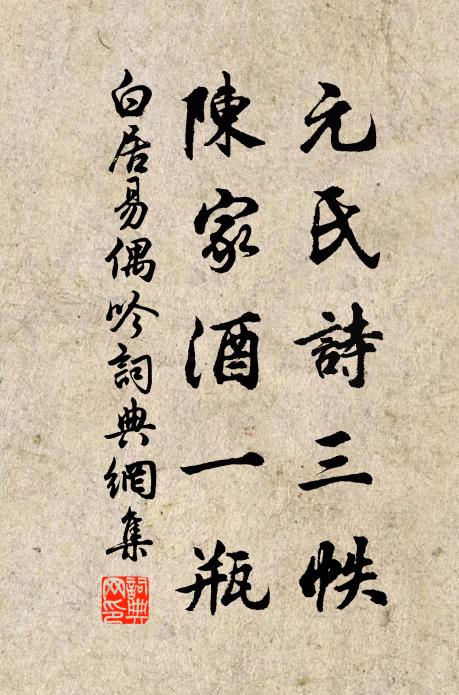 元氏詩三帙
陳家酒一瓶
白居易偶吟詞典網集
詞典网印